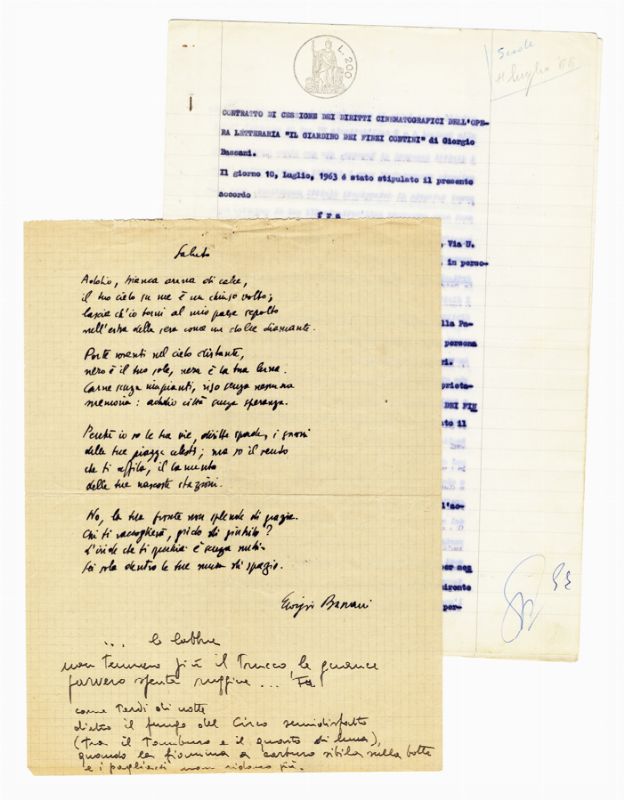 L. 200
Siade
4 luglio '66
CONTRATTO DI CESSIONE DEI DIRITTI CINEMATOGRAFICI DELL'OPE-
RA LETTERARIA "IL GIARDINO DEI FINZI CONTINI" di Giorgio
Bassani.
Il giorno 10, Luglio, 1963 é stato stipulato il presente
accordo
f r a
, Via U.
, in perso-
lla Pa-
persona
ri.
prieta-
DEI FIN
to il
l'ac-
per
per-
Saluto
Addio, bianca arena di calce,
il tuo cielo su me è un chiuso volto;
lascia ch'io torni al mio paese sepolto
nell'erba della sera come un dolce diamante.
Porte roventi nel cielo distante,
nero è il tuo sole, nera è la tua luna.
Carne senza rimpianti, riso senza nessuna
memoria: addio città senza speranza.
Perché io so le tue vie, diritte spade, i
delle tue piazze celesti; ma so il vento
che ti affila, il lamento
delle tue nascoste stazioni.
No, la tua fronte non splende di grazia.
Chi ti raccoglierà, grido di giubilo?
L'iride che ti specchia è senza
Sei sola dentro le tue mura di spazio.
Giorgio Bassani
... le labbra
non tennero più il trucco le guance
parvero spenta ruggine ...
come tardi di notte
dietro il fungo del Circo semidisfatto
(tra il tamburo e il quarto di luna),
quando la fiamma a carburo sibila sulla botte
e i pagliacci non ridono più.